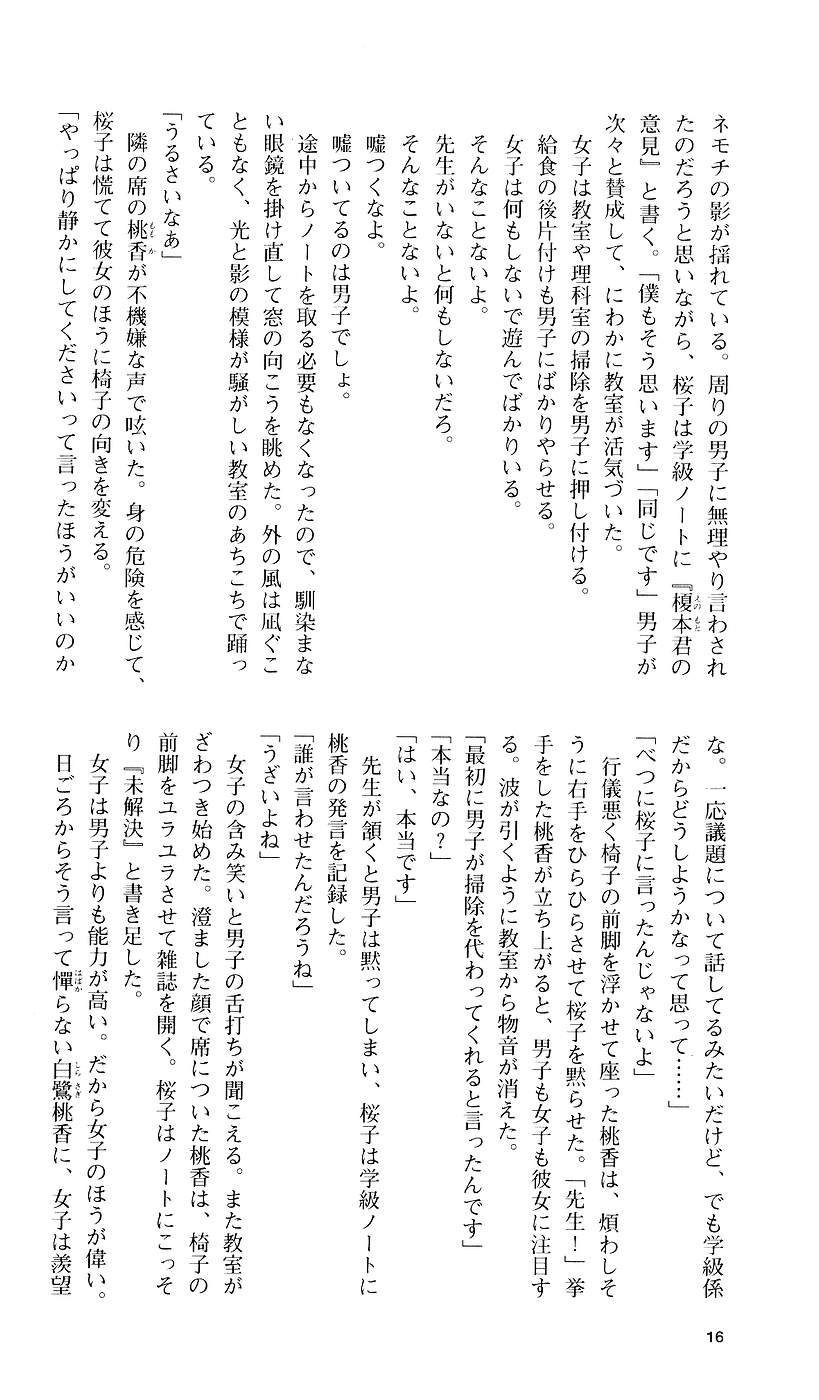 ネモチの影が揺れている。周りの男子に無理やり言わされ
たのだろうと思いながら、桜子は学級ノートに『榎本君の
意見』と書く。「僕もそう思います」「同じです」男子が
次々と賛成して、にわかに教室が活気づいた。
女子は教室や理科室の掃除を男子に押し付ける。
給食の後片付けも男子にばかりやらせる。
女子は何もしないで遊んでばかりいる。
そんなことないよ。
先生がいないと何もしないだろ。
そんなことないよ。
嘘つくなよ。
嘘ついてるのは男子でしょ。
途中からノートを取る必要もなくなったので、馴染まな
い眼鏡を掛け直して窓の向こうを眺めた。外の風は凪ぐこ
ともなく、光と影の模様が騒がしい教室のあちこちで踊っ
ている。
「うるさいなあ」
隣の席の桃香が不機嫌な声で呟いた。身の危険を感じて、
桜子は慌てて彼女のほうに椅子の向きを変える。
「やっぱり静かにしてくださいって言ったほうがいいのか
な。一応議題について話してるみたいだけど、でも学級係
だからどうしようかなって思って……」
「べつに桜子に言ったんじゃないよ」
行儀悪く椅子の前脚を浮かせて座った桃香は、煩わしそ
うに右手をひらひらさせて桜子を黙らせた。「先生！」挙
手をした桃香が立ち上がると、男子も女子も彼女に注目す
る。波が引くように教室から物音が消えた。
「最初に男子が掃除を代わってくれると言ったんです」
「本当なの？」
「はい、本当です」
先生が頷くと男子は黙ってしまい、桜子は学級ノートに
桃香の発言を記録した。
「誰が言わせたんだろうね」
「うざいよね」
女子の含み笑いと男子の舌打ちが聞こえる。また教室が
ざわつき始めた。澄ました顔で席についた桃香は、椅子の
前脚をユラユラさせて雑誌を開く。桜子はノートにこっそ
り『未解決』と書き足した。
女子は男子よりも能力が高い。だから女子のほうが偉い。
日ごろからそう言って憚らない白鷺桃香に、女子は羨望
16